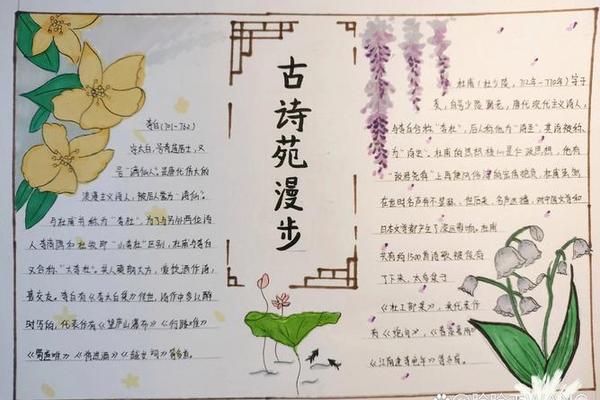 古诗苑漫步
李白(701-762)
字太白,号青莲居士,又
号"谪仙人"。是唐代伟大的
浪漫主义诗人,被后人誉为"诗仙"。
与杜甫并称为"李杜",为了与另外两位诗
人李商隐和杜牧即"小李杜"区别,杜甫与李白
又合称"大李杜"。其人爽朗大方,爱饮酒作诗,
喜交友。李白有《李太白集》传世,诗作中多以醉
时写的,代表作有《望庐山瀑布》《行路难》
《蜀道难》《将进酒》《越女词》
杜甫(杜少陵,712年-770年)字子
美,自号少陵野老,唐代现代主义诗人,
与李白合称"李杜",后人称他为"诗圣",其诗被称
为"诗史"。杜甫的思想核心是仁政思想,他有
"致君尧舜"上再使风俗淳的宏伟抱负,杜甫虽然
在世时名声并不显赫,但后来,名声远播,对中国文学和
日本文学都产生了深远影响,杜甫
共有约1500首诗歌被保留
了下来,大多集于
《杜工部集》,其代表作
有《绝句》,《春
《江南逢李龟年》等名篇。